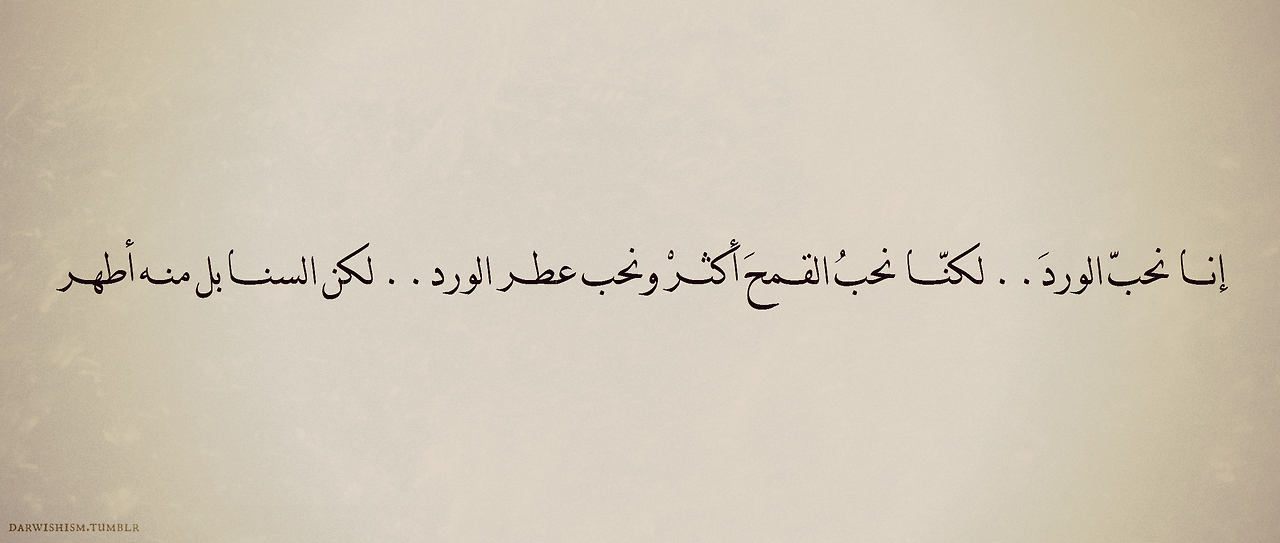 إنا نحبّ الوردَ . . لكنّا نحبُ القمحَ أكثرْ ونحب عطر الورد . . لكن السنابل منه أطهر
DARWISHISM.TUMBLR